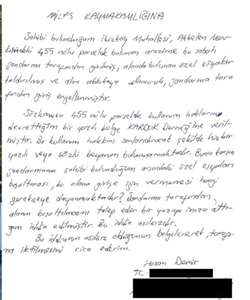 MİLAS KAYMAKAMLIĞINA
Sahibi bulunduğum İkizköy Mahallesi, Akbelen Mev-
kiindeki 455 nolu parselde bulunan arazime bu sabah
jandarma tarafından girilmiş, alanda bulunan özel eşyalar
kaldırılmış ve alan abluka altına alınarak, jandarma tara-
fından giriş engellenmiştir.
Sözkonusu 455 nolu parselde kullanım haklarını
devrettiğim bir yazılı belge KARDOK Derneğine veril-
miştir. Bu kullanım hakkını sınırlandıracak şekilde hiçbir
yazılı veya sözlü beyanım bulunmamaktadır. Buna karşın
jandarmanın sahibi bulunduğum arazideki özel eşyaları
boşaltması, bu alana girişe izin vermemesi hangi
gerekçeye dayanmaktadır? Jandarma tarafından,
alanın boşaltılmasını talep eden bir yazıya imza attı-
ğım iddia edilmiştir. Bu iddia asılsızdır.
Bu iddianın asılsız olduğunun belgelenerek tarafı-
ma iletilmesini rica ederim.
Hasan Demir
TC: